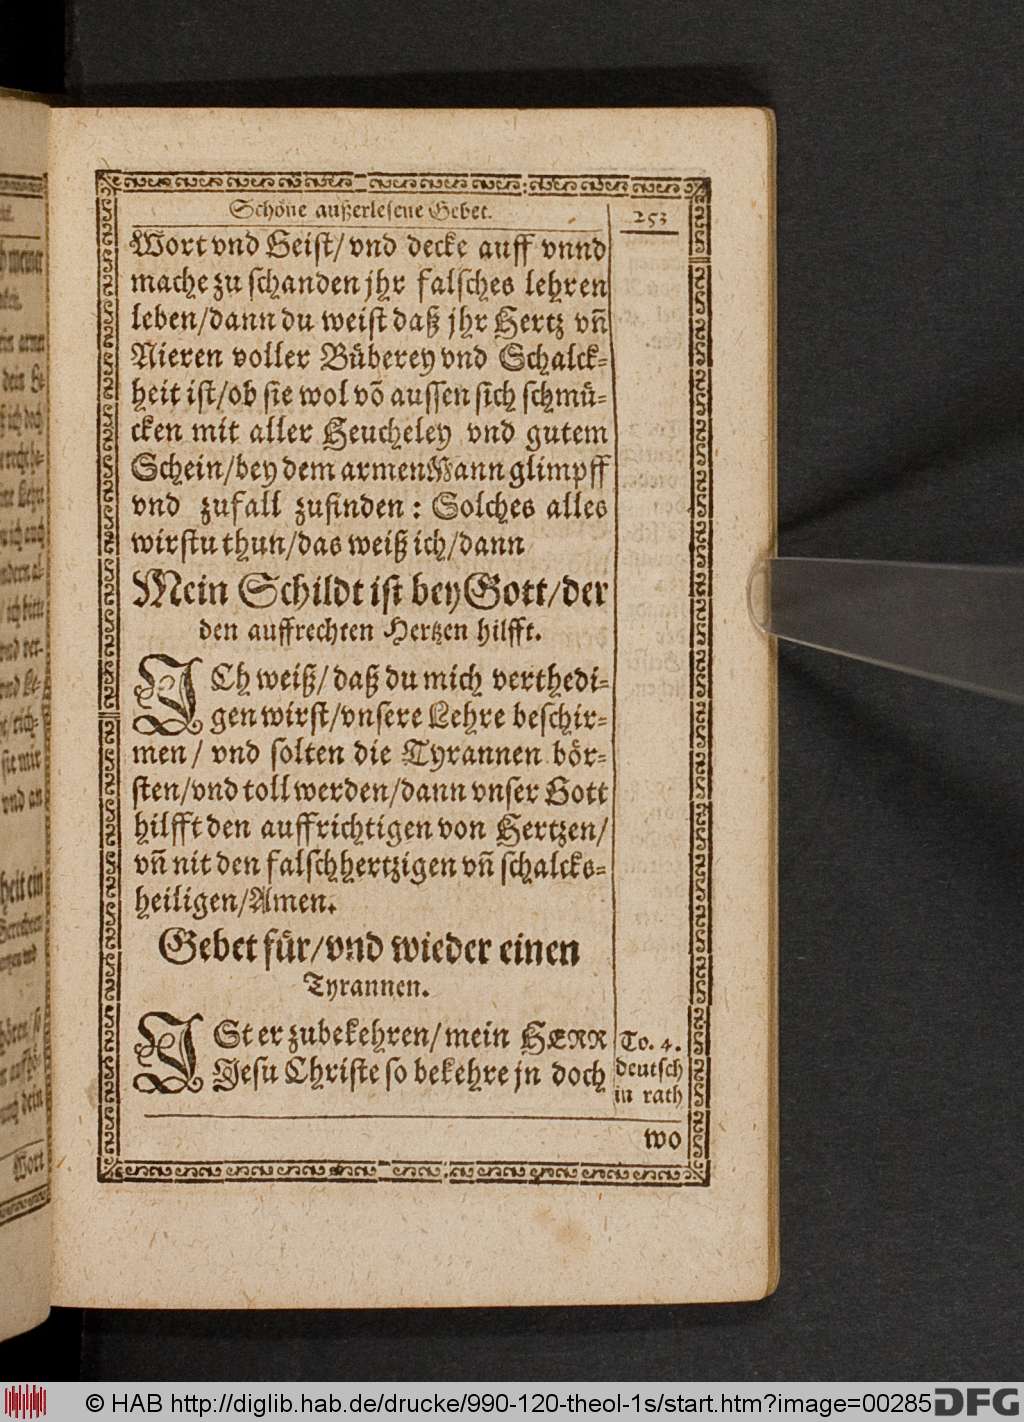 Schöne außerlesene Gebet.
253
Wort vnd Geist/ vnd decke auff vnnd
mache zu schanden jhr falsches lehren
leben/dann du weist daß jhr Hertz vñ
Nieren voller Büberey vnd Schalck-
heit ist/ob sie wol võ aussen sich schmü-
cken mit aller Heucheley vnd gutem
Schein/bey dem armen Mann glimpff
vnd zufall zufinden: Solches alles
wirstu thun/das weiß ich/dann
Mein Schildt ist bey Gott/der
den auffrechten Hertzen hilfft.
ICh weiß/ daß du mich verthedi-
gen wirst/vnsere Lehre beschir-
men/ vnd solten die Tyrannen bör-
sten/vnd toll werden/dann vnser Gott
hilfft den auffrichtigen von Hertzen/
vñ nit den falschhertzigen vñ schalcks-
heiligen/Amen.
Gebet für/vnd wieder einen
Tyrannen.
ISt er zubekehren/mein HERR
Jesu Christe so bekehre jn doch
To. 4.
deutsch
in rath
wo
Wort
© HAB http://diglib.hab.de/drucke/990-120-theol-1s/start.htm?image=00285
DFG